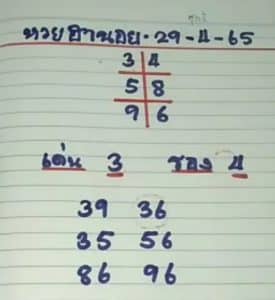 หวยฮานอย·29-4-65
3 4
5 8
9 6
เด่น 3 รอง 4
39 36
35 56
86 96